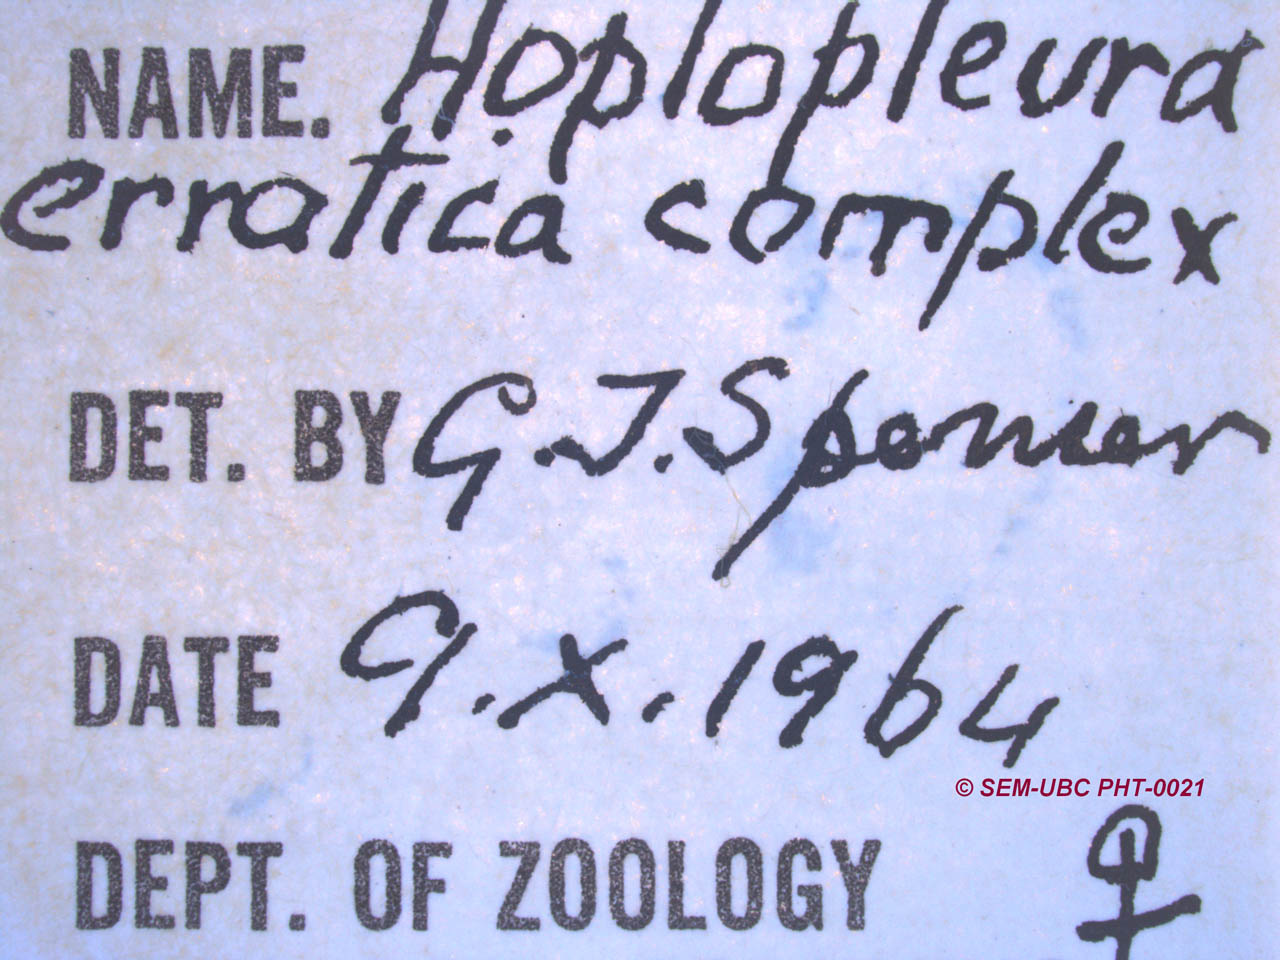 NAME. Hoplopleura
erratica complex
DET. BY G.J. Spencer
DATE 9.X.1964
© SEM-UBC PHT-0021
DEPT. OF ZOOLOGY ♀